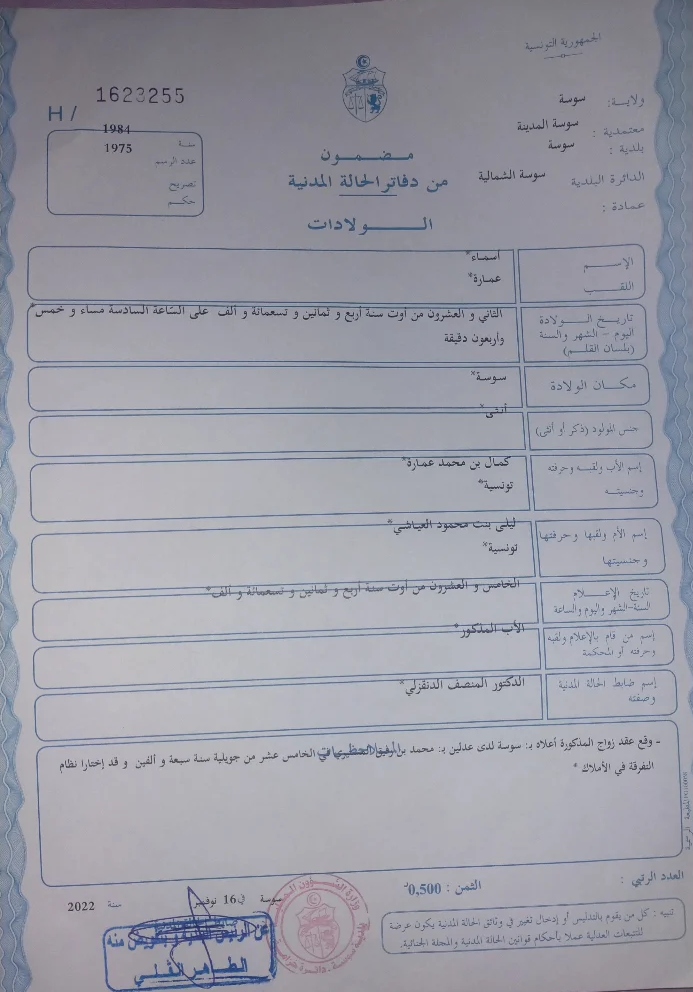 الجمهورية التونسية
H/ 1623255
ولاية: سوسة
معتمدية: سوسة المدينة
بلدية: سوسة
الدائرة البلدية سوسة الشمالية
عمادة:
سنة 1984
عدد الرسم 1975
تصريح
حكم
مضمون
من دفاتر الحالة المدنية
الولادات
الإسم أسماء*
اللقب عمارة*
تاريخ الولادة
اليوم - الشهر والسنة
(بلسان القلم)
الثاني و العشرون من أوت سنة أربع و ثمانين و تسعمائة و ألف على الساعة السادسة مساء و خمس*
وأربعون دقيقة
مكان الولادة سوسة*
جنس المولود (ذكر أو أنثى) أنثى*
إسم الأب ولقبه وحرفته
وجنسيته
كمال بن محمد عمارة*
تونسية*
إسم الأم ولقبها وحرفتها
وجنسيتها
ليلى بنت محمود العياشي*
تونسية*
تاريخ الإعلام
السنة-الشهر واليوم والساعة
الخامس و العشرون من أوت سنة أربع و ثمانين و تسعمائة و ألف*
إسم من قام بالإعلام ولقبه
وحرفته أو المحكمة
الأب المذكور*
إسم ضابط الحالة المدنية
وصفته
الدكتور المنصف الدنقزلي*
- وقع عقد زواج المذكورة أعلاه بـ: سوسة لدى عدلين بـ: محمد بن في الخامس عشر من جويلية سنة سبعة و ألفين و قد إختارا نظام
التفرقة في الأملاك *
العدد الرتبي :
الثمن : 0,500د
سوسة في 16 نوفمبر سنة 2022
تنبيه : كل من يقوم بالتدليس أو إدخال تغيير في وثائق الحالة المدنية يكون عرضة
للتتبعات العدلية عملا بأحكام قوانين الحالة المدنية والمجلة الجنائية.
عن الرئيس و بتفويض منه